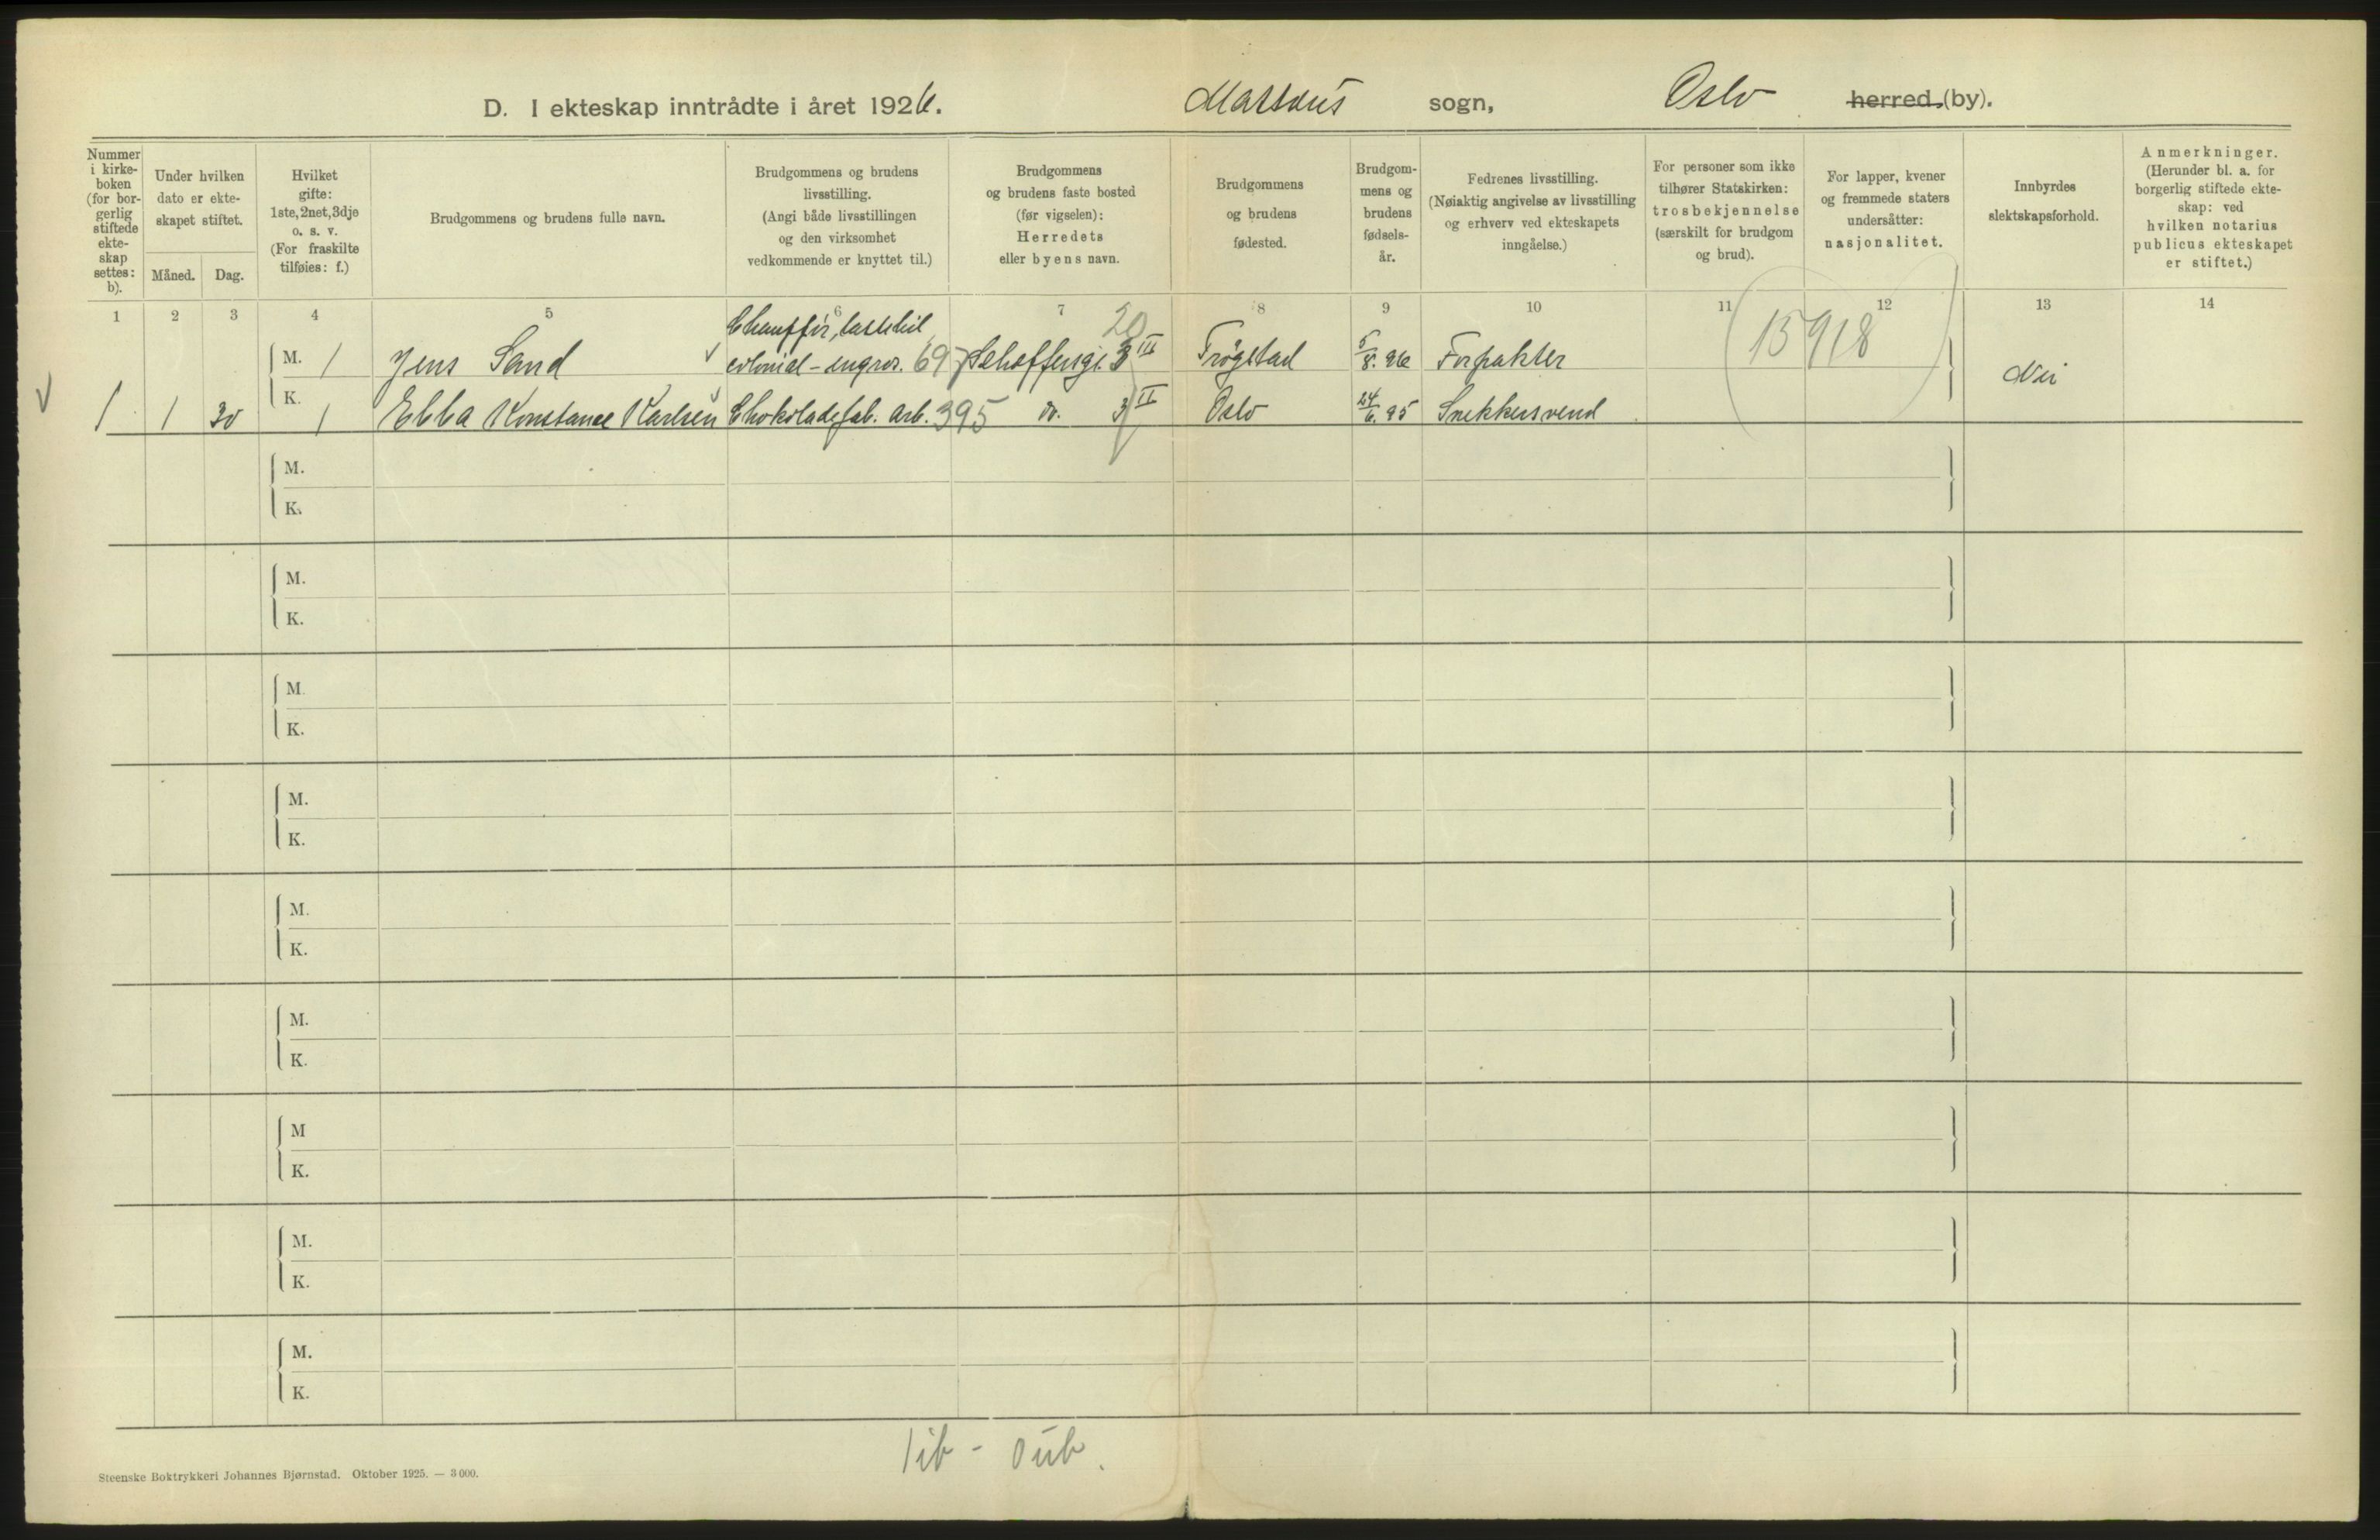 D. I ekteskap inntrådte i året 1926. Matteus sogn, Oslo herred (by).
Nummer i kirke-boken (for bor-gerlig stiftede ekte-skap settes: b).
Under hvilken dato er ekte-skapet stiftet.
Måned. Dag.
Hvilket gifte: 1ste, 2net, 3dje o. s. v. (For fraskilte tilføies: f.)
Brudgommens og brudens fulle navn.
Brudgommens og brudens livsstilling. (Angi både livsstillingen og den virksomhet vedkommende er knyttet til.)
Brudgommens og brudens faste bosted (før vigselen): Herredets eller byens navn.
Brudgommens og brudens fødested.
Brudgom-mens og brudens fødsels-år.
Fedrenes livsstilling. (Nøiaktig angivelse av livsstilling og erhverv ved ekteskapets inngåelse.)
For personer som ikke tilhører Statskirken: trosbekjennelse (særskilt for brudgom og brud).
For lapper, kvener og fremmede staters undersåtter: nasjonalitet.
Innbyrdes slektskapsforhold.
Anmerkninger. (Herunder bl. a. for borgerlig stiftede ekte-skap: ved hvilken notarius publicus ekteskapet er stiftet.)
1 2 3 4 5 6 7 8 9 10 11 12 13 14
Chauffør, lastebil 20
M. 1 Jens Sand colonial-engros. 697 Scheffersgt. 3 III Trøgstad 5/8. 96 Forpakter (15918) Nei
1 1 30 K. 1 Ebba Konstance Karlsen Chokoladefab. arb. 395 do. 3 II Oslo 24/6. 95 Snekkersvend
M.
K.
M.
K.
M.
K.
M.
K.
M.
K.
M.
K.
M
K.
M.
K.
M.
K.
Steenske Boktrykkeri Johannes Bjørnstad. Oktober 1925. — 3 000.